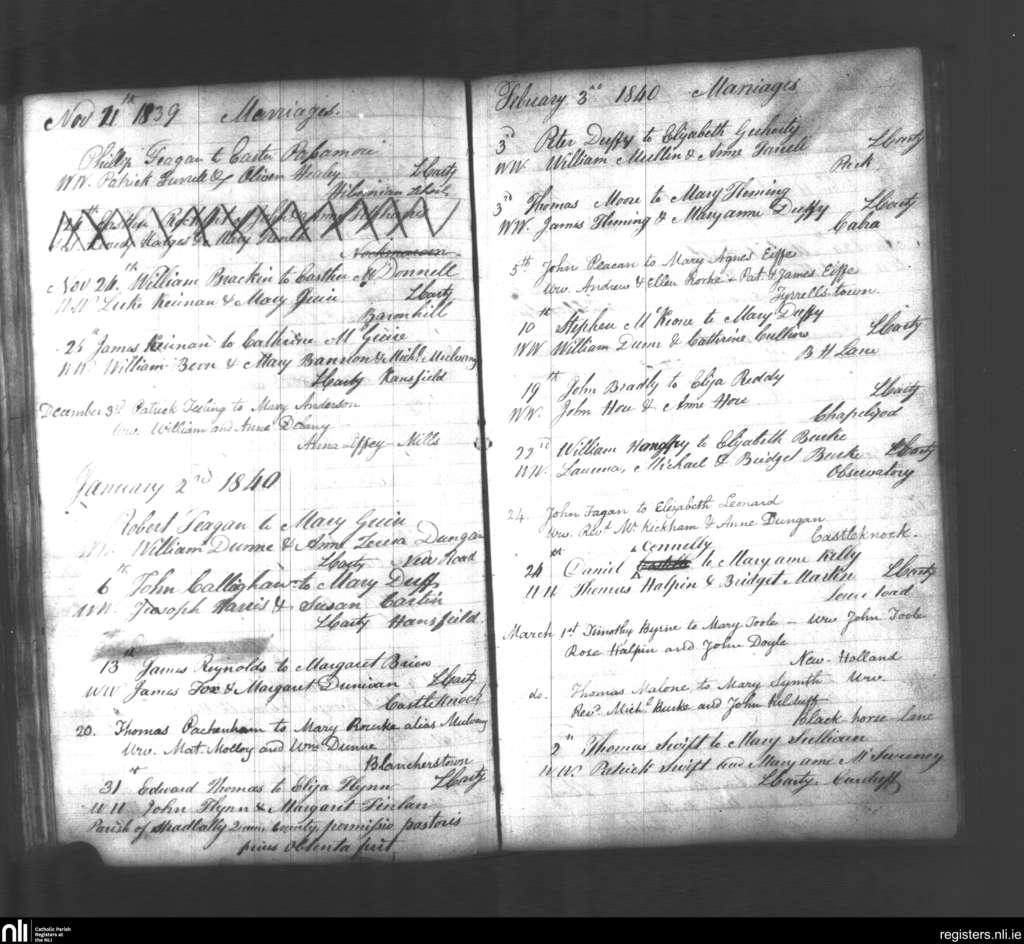 Nov 21th 1839 Marriages.
Philip Feagan to Easter Passmore
WW. Patrick Farrell & Oliver Healy LCarty
Hibernian School
Nov 24th William Brackin to Easther McDonnell
WW Luke Keinan & Mary Guin LCarty
Baronhill
25 James Keinan to Catherine McGuire
WW. William Bern & Mary Bannon & Michl Mulvany
LCarty Hansfield
December 3rd Patrick Feeling to Mary Anderson
Ww. William and Anne Delany
Anna Liffey Mills
January 2nd 1840
Robert Feagan to Mary Guin
WW. William Dunne & Anne Teresa Dungan
LCarty New Road
6th John Callighan to Mary Duff
WW. Joosoph Harris & Susan Carlin
LCarty Hansfield
13th James Reynolds to Margaret Brien
WW James Fox & Margaret Dunivan LCarty
CastleKnock
20. Thomas Packenham to Mary Rourke alias Mulvany
Ww. Mat. Molloy and Wm Dunne
Blancherstown
31st Edward Thomas to Eliza Flynn LCarty
WW. John Flynn & Margaret Finlan
Parish of Stradbally Queens County, permissio pastoris
prius obtenta fuit
February 3rd 1840 Marriages
3d Peter Duffy to Elyzabeth Geehorty
WW William Mullen & Anne Farrell LCarty
Park
3rd Thomas Moore to Mary Fleming
WW. James Fleming & Maryanne Duffy LCarty
Cabra
5th John Peacan to Mary Agnes Eiffe
Ww. Andrew & Ellen Rorke & Pat & James Eiffe
Tyrrells town
10th Stephen McKeone to Mary Duffy
WW William Dunn & Cathrine Cullins LCarty
B H Lane
19th John Bradly to Eliza Reddy
WW. John Houe & Anne Hoie LCarty
Chapelizod
22nd William to Elyzabeth Burke
WW. Laurence, Michael & Bridget Burke LCarty
Observatory
24. John Fagan to Elizabeth Leonard
Ww. Revd Mr Kickham & Anne Dungan
Castleknock.
24th Daniel Connelly to Maryanne Kelly
WW Thomas Halpin & Bridget Martin LCarty
road
March 1st Timothy Byrne to Mary Toole - Ww John Toole
Rose Halpin and John Doyle
New-Holland
do. Thomas Malone to Mary Symth Ww.
Revd. Michl Burke and John Kilduff
black horse-lane
2nd Thomas Swift to Mary Sullivan
WW. Patrick Swift and Maryanne McSweeney
LCarty Cardiff
nli Catholic Parish Registers at the NLI
registers.nli.ie